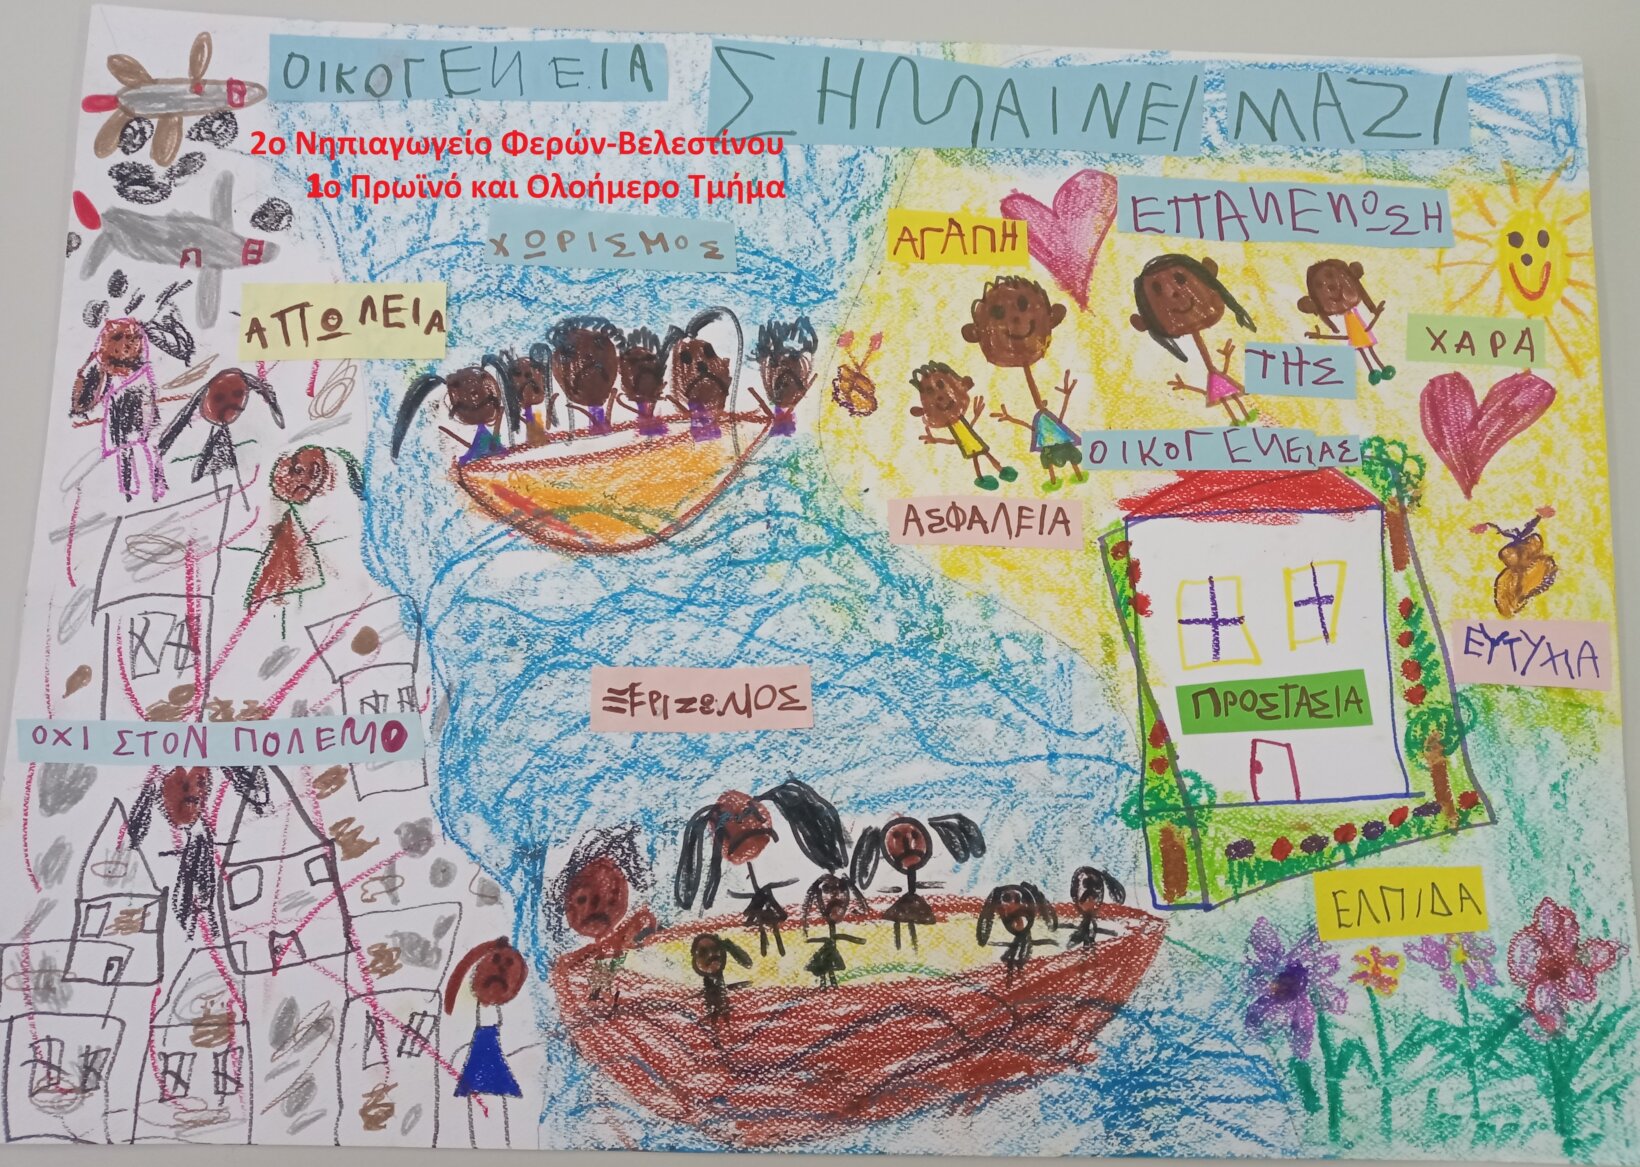 ΟΙΚΟΓΕΝΕΙΑ ΣΗΜΑΙΝΕΙ ΜΑΖΙ
2ο Νηπιαγωγείο Φερών-Βελεστίνου
1ο Πρωϊνό και Ολοήμερο Τμήμα
ΧΩΡΙΣΜΟΣ
ΑΠΩΛΕΙΑ
ΑΓΑΠΗ
ΕΠΑΝΕΝΩΣΗ
ΤΗΣ
ΟΙΚΟΓΕΝΕΙΑΣ
ΧΑΡΑ
ΑΣΦΑΛΕΙΑ
ΕΥΤΥΧΙΑ
ΞΕΡΙΖΩΜΟΣ
ΠΡΟΣΤΑΣΙΑ
ΟΧΙ ΣΤΟΝ ΠΟΛΕΜΟ
ΕΛΠΙΔΑ